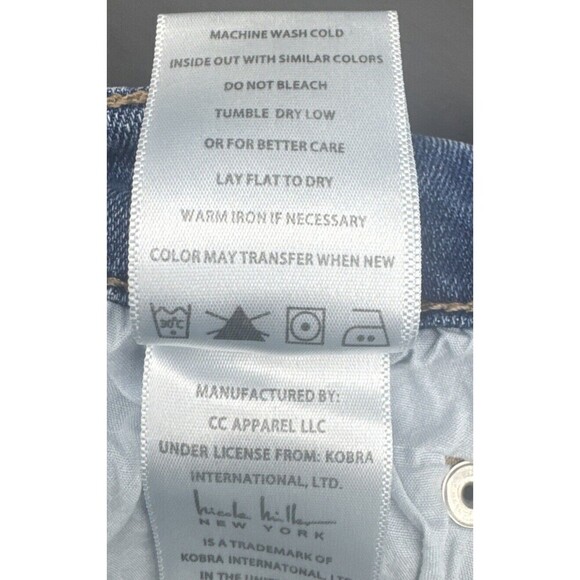 MACHINE WASH COLD
INSIDE OUT WITH SIMILAR COLORS
DO NOT BLEACH
TUMBLE DRY LOW
OR FOR BETTER CARE
LAY FLAT TO DRY
WARM IRON IF NECESSARY
COLOR MAY TRANSFER WHEN NEW
30°C
MANUFACTURED BY:
CC APPAREL LLC
UNDER LICENSE FROM: KOBRA
INTERNATIONAL, LTD.
nicole miller
NEW YORK
IS A TRADEMARK OF
KOBRA INTERNATIONAL, LTD
IN THE